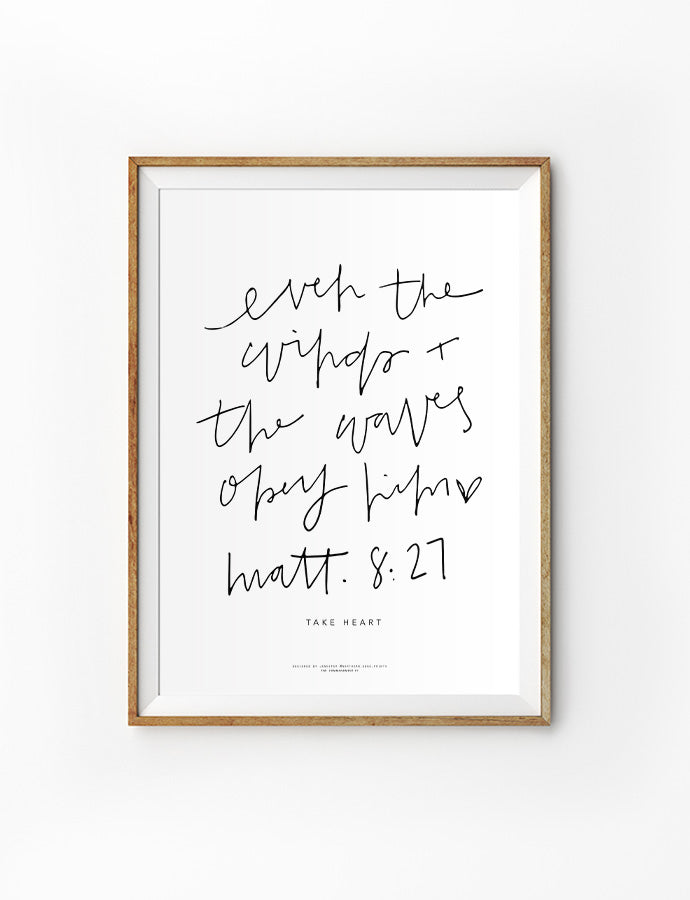 even the
winds +
the waves
obey him
matt. 8:27
TAKE HEART
DESIGNED BY